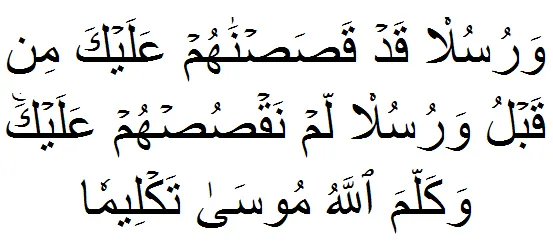 وَرُسُلٗا قَدۡ قَصَصۡنَٰهُمۡ عَلَيۡكَ مِن
قَبۡلُ وَرُسُلٗا لَّمۡ نَقۡصُصۡهُمۡ عَلَيۡكَۚ
وَكَلَّمَ ٱللَّهُ مُوسَىٰ تَكۡلِيمٗا